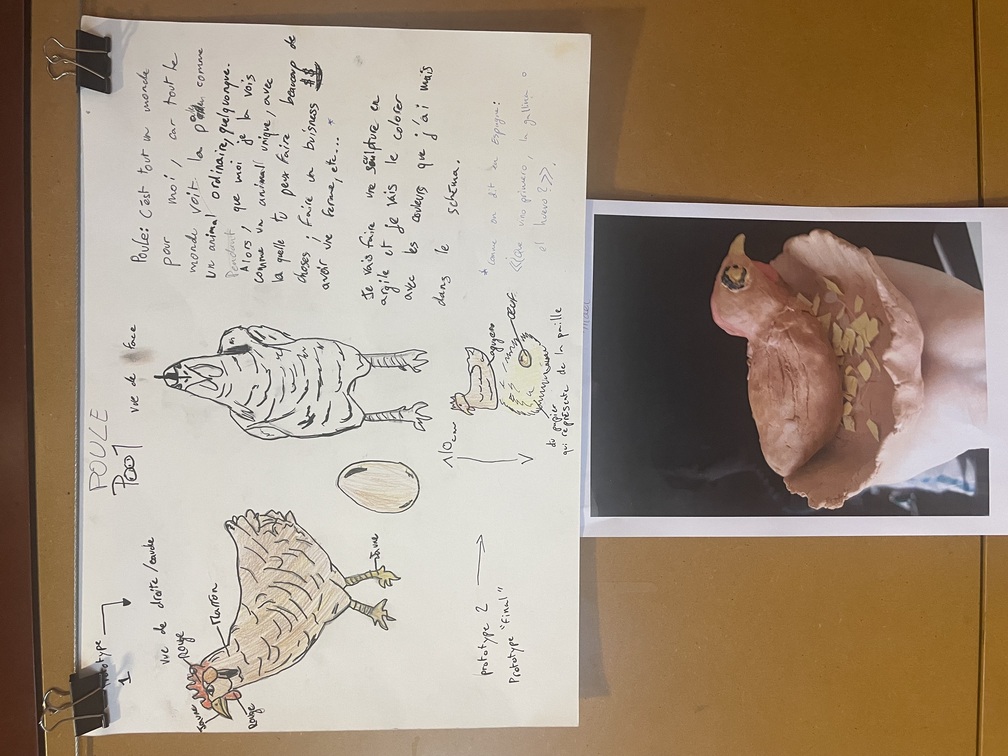 POULE
Prototype
1
vue de droite/gauche
vue de face
rouge
Marron
Jaune
rouge
Jaune
Poule: C'est tout un monde
pour moi, car tout le
monde voit la comme
un animal ordinaire, quelquonque.
Alors, que moi je la vois
comme un animal unique, avec
la quelle tu peux faire beaucoup de
choses; faire un buisness $$
avoir une ferme, etc... *
Je vais faire une sculpture en
argile et je vais le colorer
avec les couleurs que j'ai mais
dans le schéma.
* comme on dit en Espagne:
<<¿Que vino primero, la gallina o
el huevo?>>.
prototype 2
Prototype "Final"
10 cm
ŒUF
du papier
qui représente de la paille